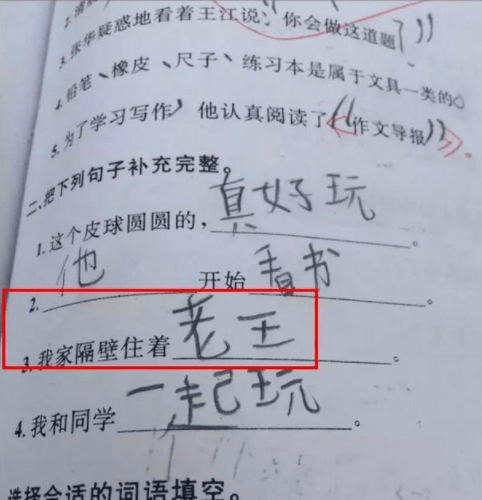 3. 张华疑惑地看着王江说：你会做这道题？”
4. 铅笔、橡皮、尺子、练习本是属于文具一类的。
5. 为了学习写作，他认真阅读了《作文导报》。
二、把下列句子补充完整。
1. 这个皮球圆圆的，真好玩。
2. 他开始看书。
3. 我家隔壁住着老王。
4. 我和同学一起玩。
选择合适的词语填空。